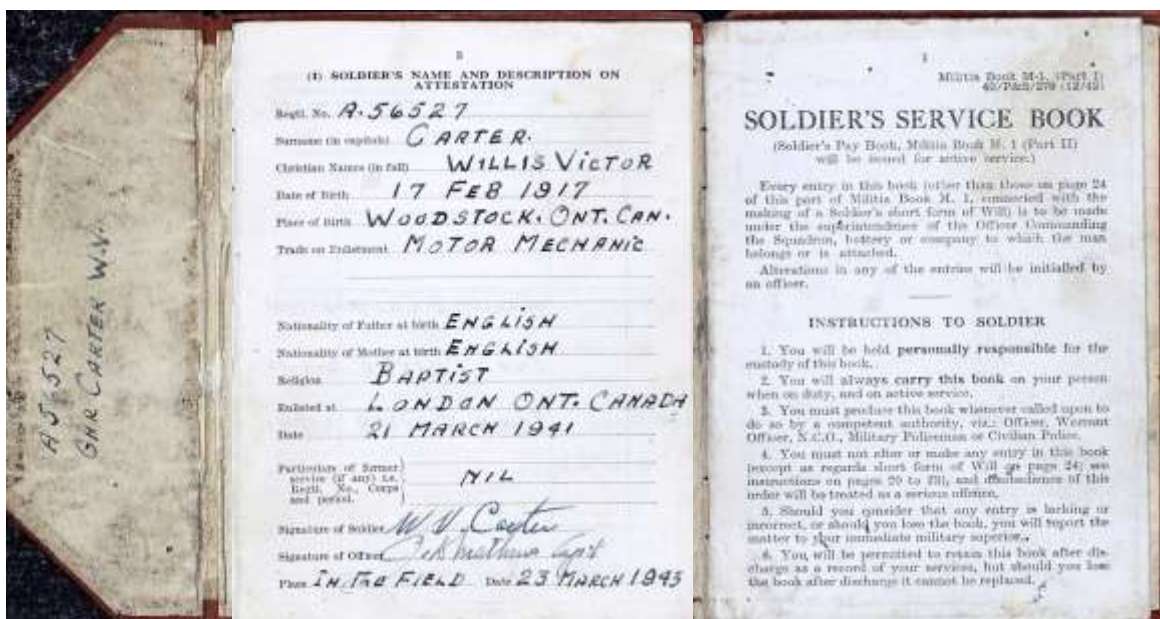 A 56527
GNR CARTER W.V.
2
(1) SOLDIER'S NAME AND DESCRIPTION ON
ATTESTATION
Regtl. No. A.56527
Surname (in capitals) CARTER.
Christian Names (in full) WILLIS VICTOR
Date of Birth 17 FEB 1917
Place of Birth WOODSTOCK. ONT. CAN.
Trade on Enlistment MOTOR MECHANIC
Nationality of Father at birth ENGLISH
Nationality of Mother at birth ENGLISH
Religion BAPTIST
Enlisted at LONDON ONT. CANADA
Date 21 MARCH 1941
Particulars of former
service (if any) i.e.
Regtl. No., Corps
and period.
NIL
Signature of Soldier W. V. Carter
Signature of Officer Capt
Place IN THE FIELD Date 23 MARCH 1943
1
Militia Book M-1. (Part I)
SOLDIER'S SERVICE BOOK
(Soldier's Pay Book, Militia Book M. 1 (Part II)
will be issued for active service.)
Every entry in this book (other than those on page 24
of this part of Militia Book M. 1, connected with the
making of a Soldier's short form of Will) is to be made
under the superintendence of the Officer Commanding
the Squadron, battery or company to which the man
belongs or is attached.
Alterations in any of the entries will be initialled by
an officer.
INSTRUCTIONS TO SOLDIER
1. You will be held personally responsible for the
custody of this book.
2. You will always carry this book on your person
when on duty, and on active service.
3. You must produce this book whenever called upon to
do so by a competent authority, viz.: Officer, Warrant
Officer, N.C.O., Military Policeman or Civilian Police.
4. You must not alter or make any entry in this book
(except as regards short form of Will on page 24; see
instructions on pages 20 to 23), and disobedience of this
order will be treated as a serious offence.
5. Should you consider that any entry is lacking or
incorrect, or should you lose the book, you will report the
matter to your immediate military superior.
6. You will be permitted to retain this book after dis-
charge as a record of your services, but should you lose
the book after discharge it cannot be replaced.